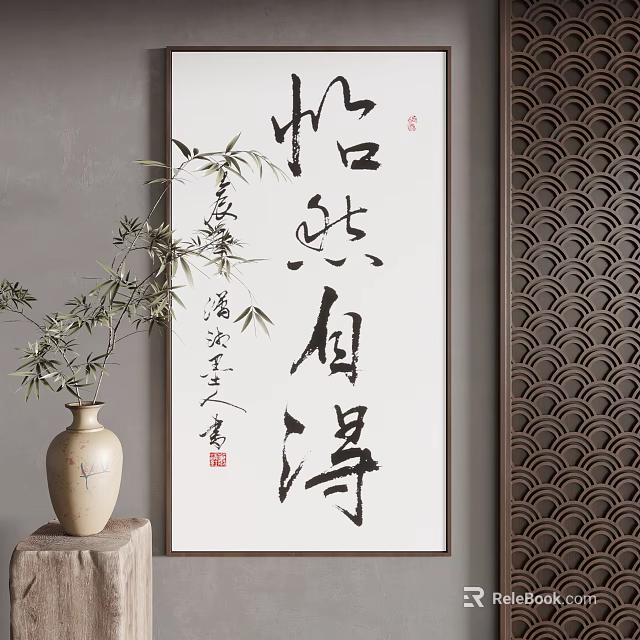 怡然自得
潇湘墨人书
ReleBook.com